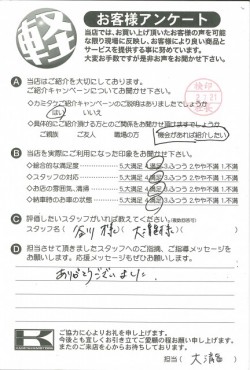 軽
お客様アンケート
当店では、お買い上げ頂いたお客様の声を可能
な限り現場に反映し、お客様により良い商品と
サービスを提供する事に努めています。
大変お手数ですが是非お声をお聞かせ下さい。
A 当店はご紹介を大切にしております。
ご紹介キャンペーンについてお聞かせ下さい。
◇カミタケご紹介キャンペーンのご説明はありましたでしょうか
はい いいえ
◇具体的にご紹介頂ける方とのご関係をお聞かせ頂けますでしょうか
ご親族 ご友人 職場の方 機会があれば紹介したい
B 当店を実際にご利用になった印象をお聞かせ下さい。
◇総合的な満足度 5.大満足 4.満足 3.ふつう 2.やや不満 1.不満
◇スタッフの対応 5.大満足 4.満足 3.ふつう 2.やや不満 1.不満
◇お店の雰囲気、清掃 5.大満足 4.満足 3.ふつう 2.やや不満 1.不満
◇納車時のお車の状態 5.大満足 4.満足 3.ふつう 2.やや不満 1.不満
C 評価したいスタッフがいれば教えてください。
スタッフ名( 谷川様 )
D 担当させて頂きましたスタッフへのご指摘、ご指導メッセージを
お願いします。応援メッセージもぜひお願いします。
ありがとうございました。
K
ご協力に心よりお礼を申し上げます。
今後とも宜しくお引き立てご愛顧の程お願い申し上げます。
またのご来店を心からお待ちしております。
担当(